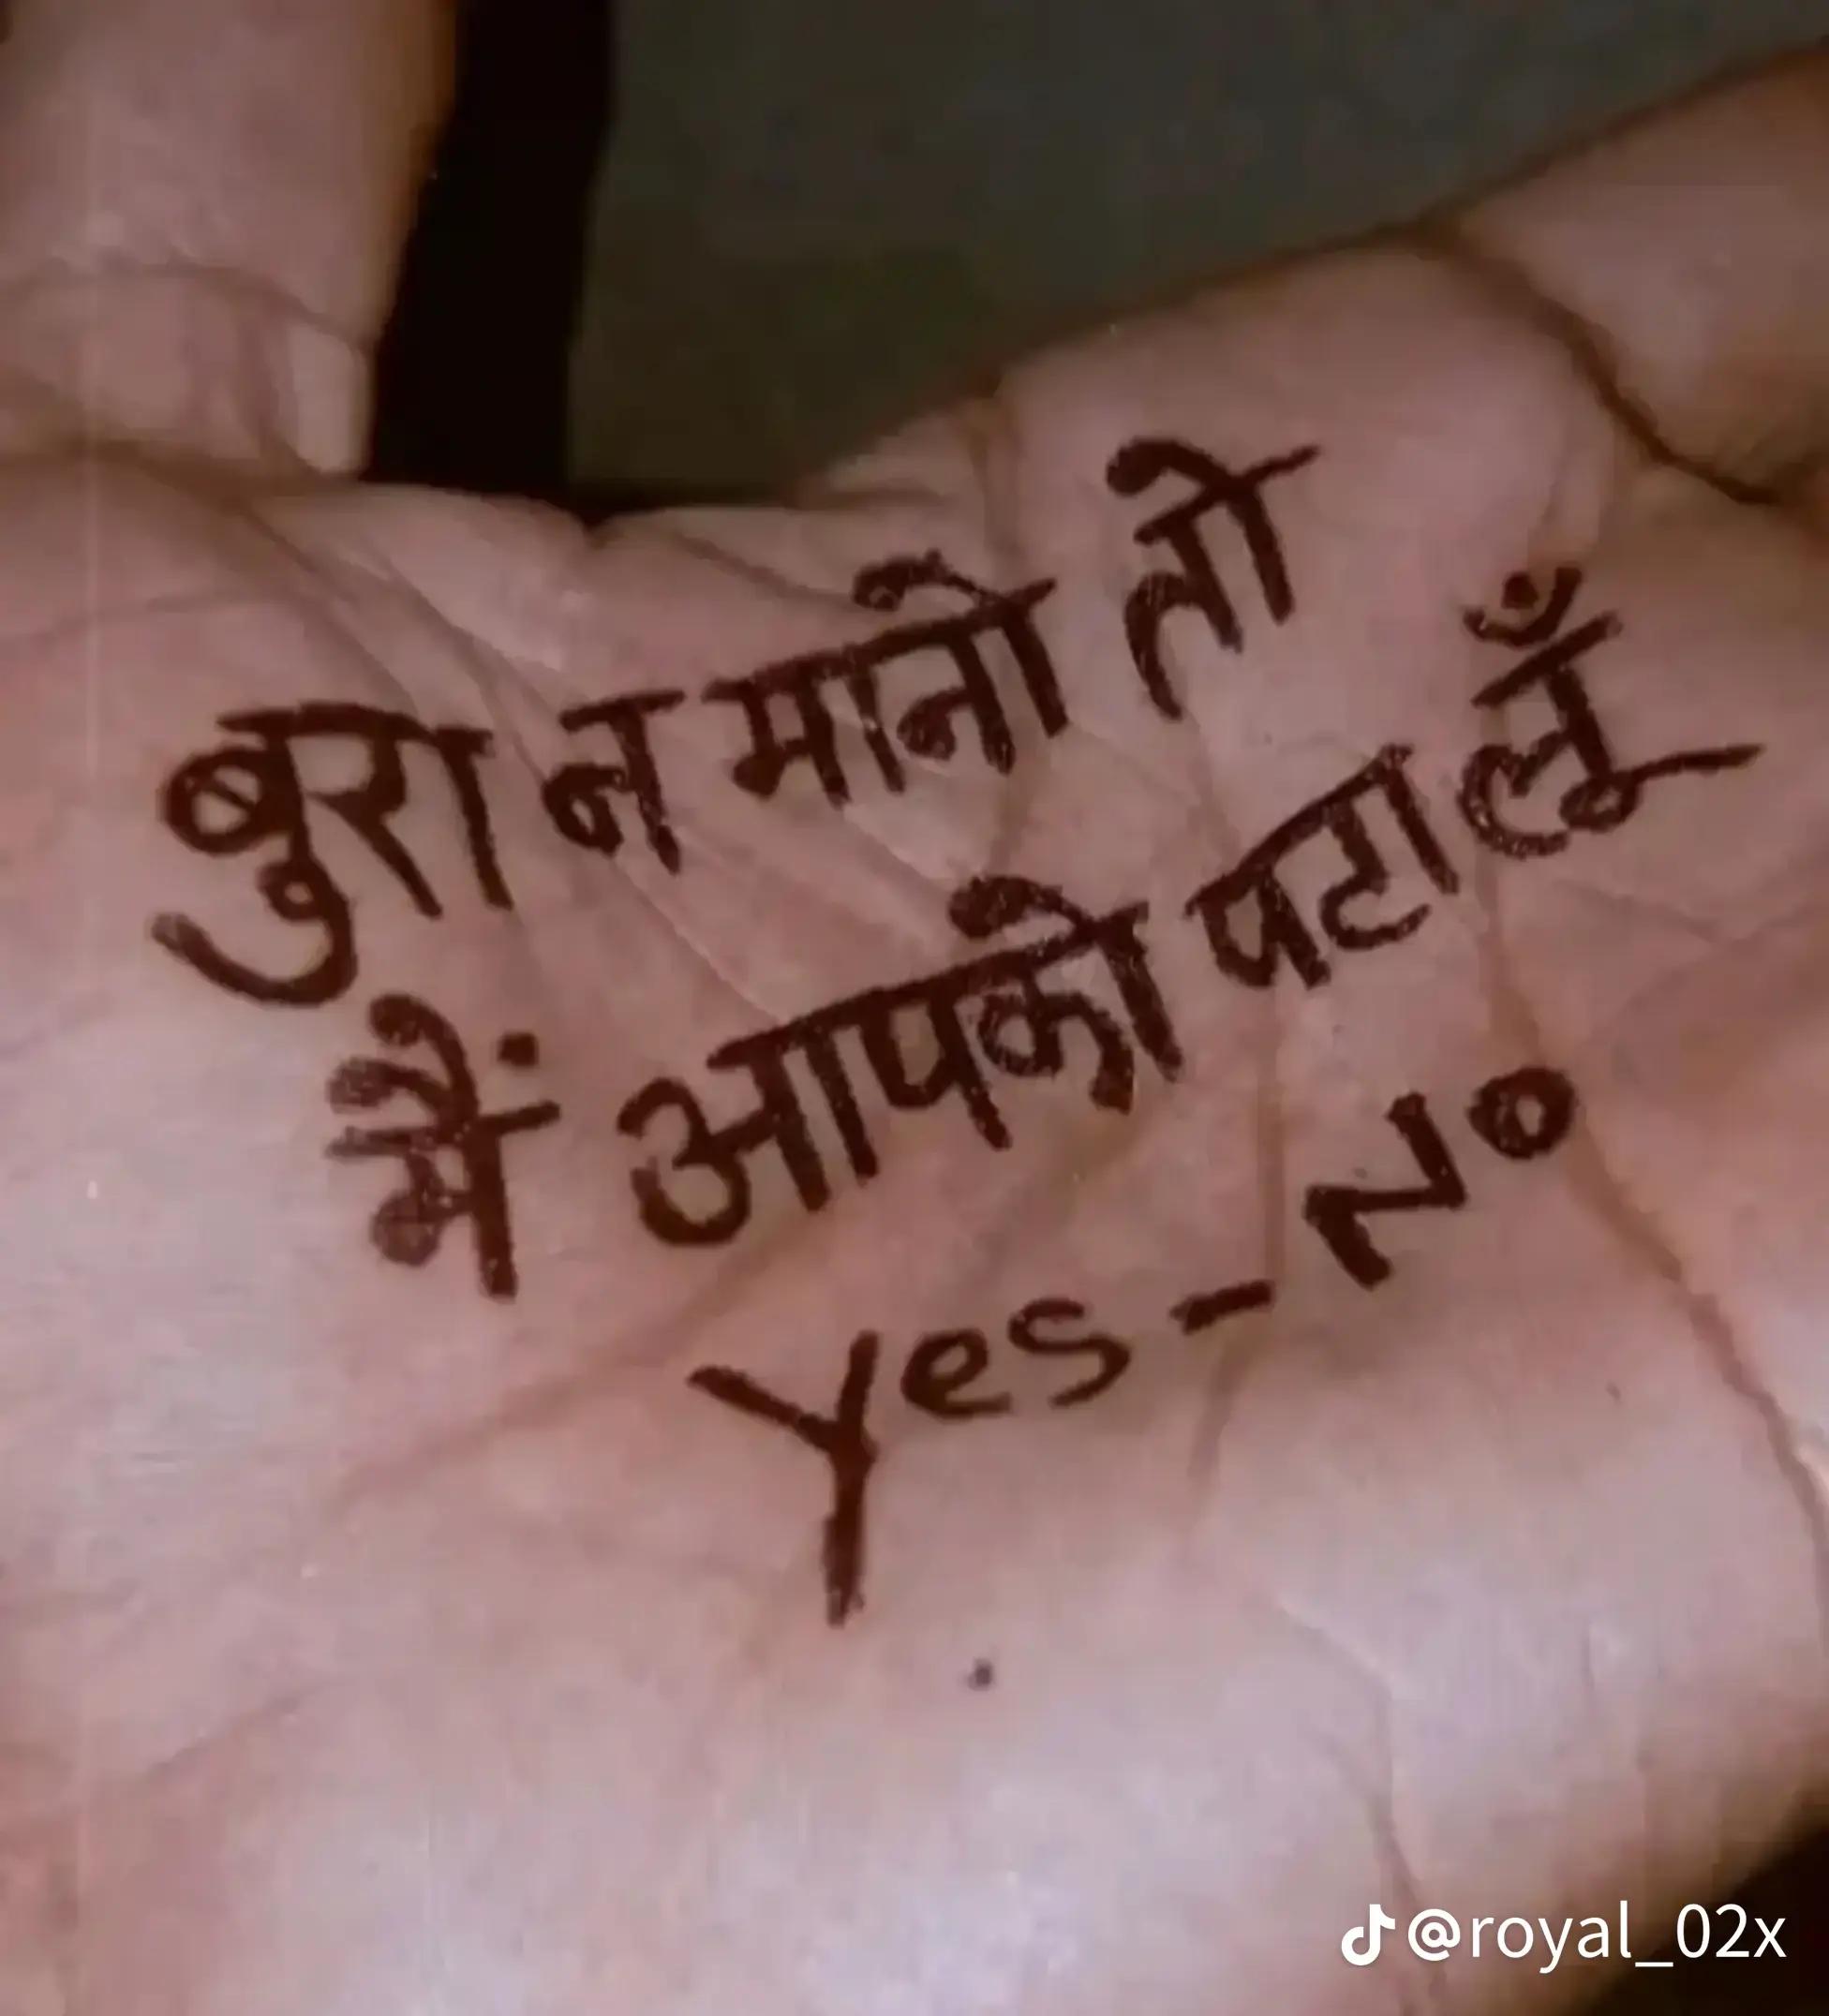 बुरा न मानो तो
मैं आपको पटा लूँ
Yes - No
@royal_02x